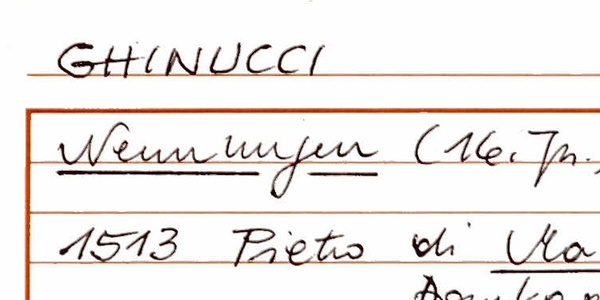 GHINUCCI
Nennungen (16. Jh.
1513 Pietro di